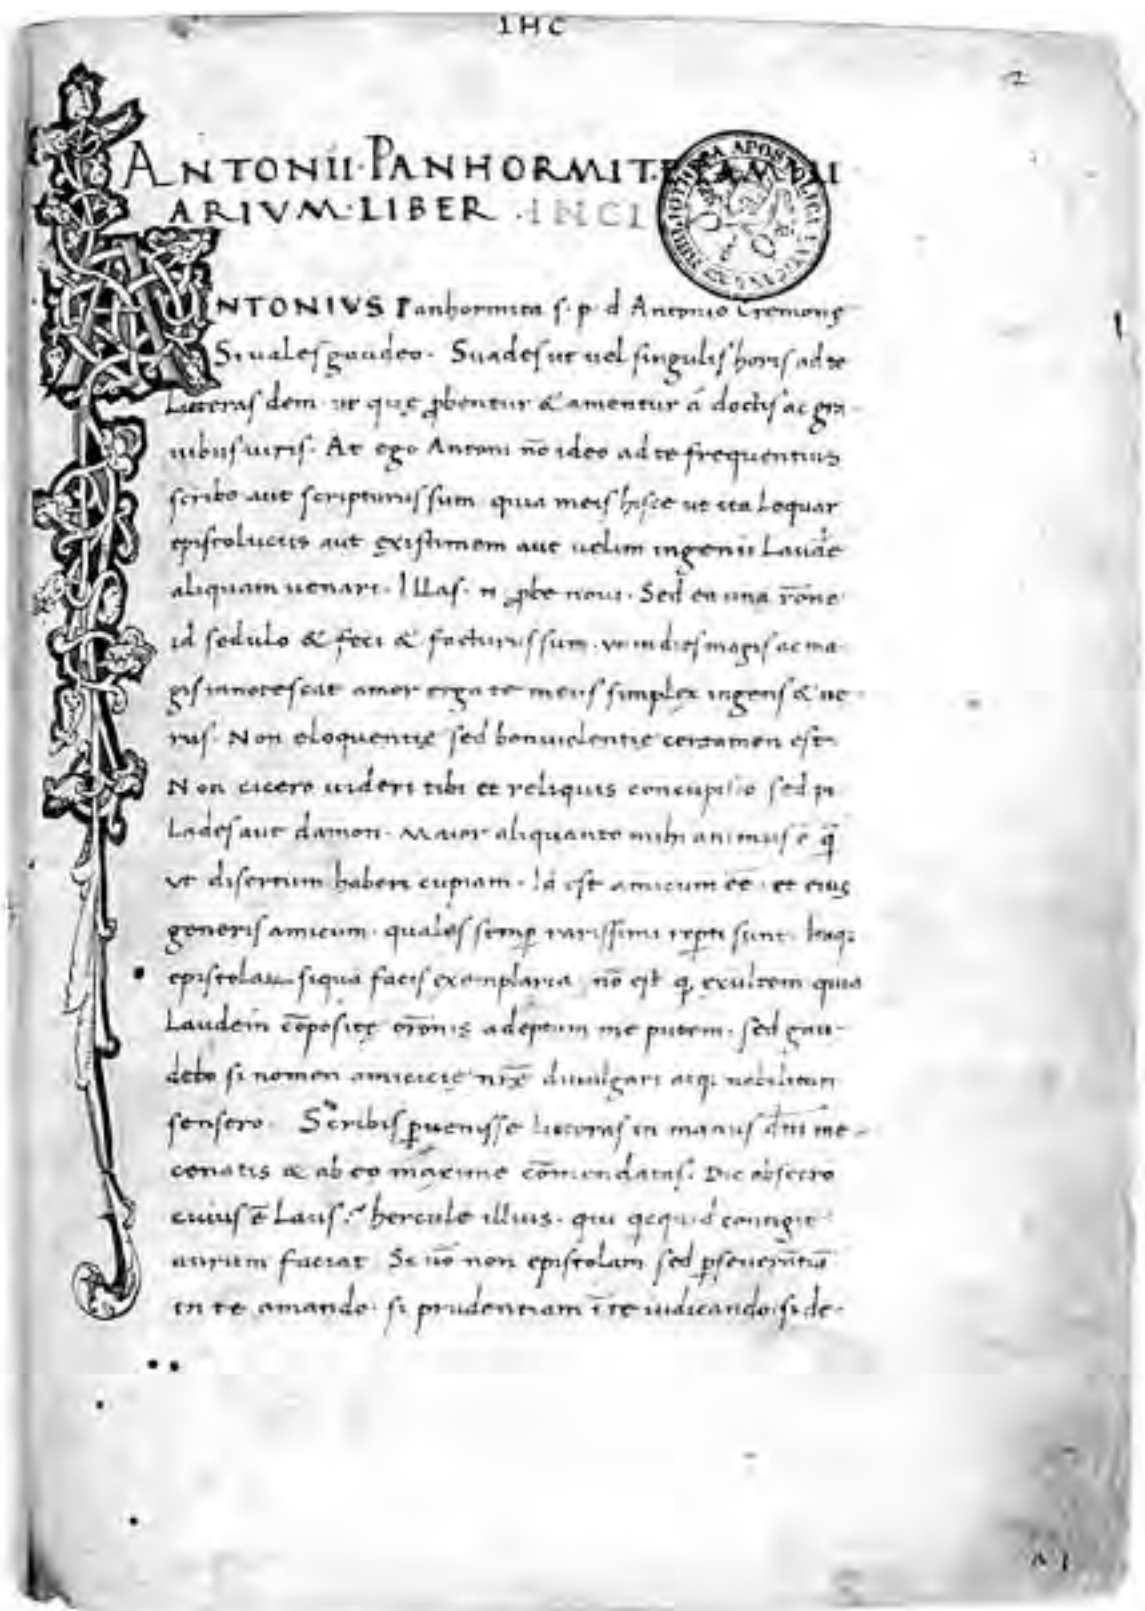 IHC
2
ANTONII·PANHORMITE FAMILI
ARIVM·LIBER·INCI
BIBLIOTHECA APOSTOLICA VATICANA
ANTONIVS Panhormita s·p·d Antonio Cremonę
Si uales gaudeo· Suades ut uel singulis horis ad te
Litteras dem· ut quę ꝓbentur & amentur á doctis ac gra-
uibus uiris· At ego Antoni nō ideo ad te frequentius
scribo aut scripturus sum quia meis hisce ut ita Loquar
epistoluciis aut existimem aut uelim ingenii Laudē
aliquam uenari· Illas· n ꝓbe noui· Sed ea una rōne
id sedulo & feci & facturus sum· ut in dies magis ac ma-
gis innotescat amor erga te meus simplex ingens & ue-
rus· Non eloquentię sed beniuolentię certamen est·
Non cicero uideri tibi et reliquis concupisco sed pi
Lades aut damon· Maior aliquanto mihi animus ē q̄
ut disertum haberi cupiam· Id est amicum eē· et eius
generis amicum· quales semꝑ rarissimi reꝑti sunt· Itaq;
siqua facis exemplaria nō est q, exultem quia
Laudem cōpositę orōnis adeptum me putem· sed gau-
debo si nomen amicicię nr̄ę diuulgari atq; nobilitari
sensero· Scribis ꝑuenisse Litteras in manus dn̄i me-
cenatis & ab eo maxime cōmendatas· Dic obsecro
cuius ē Laus· hercule illius· qui qcqd contigit
aurum faciat Si uō non epistolam sed ꝑseuerātiā
in te amando· si prudentiam ī te iudicando· si de-
A 1